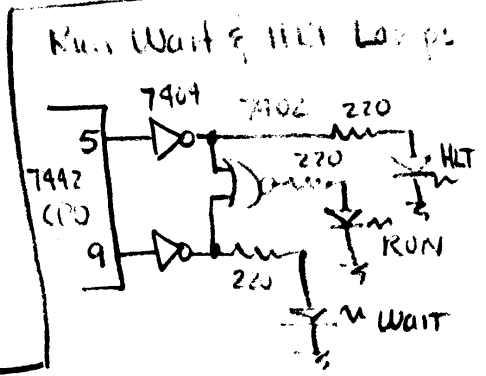 Run Wait & HLT Lamps
7404
7402
220
5
220
HLT
7442
CPU
RUN
9
220
WAIT